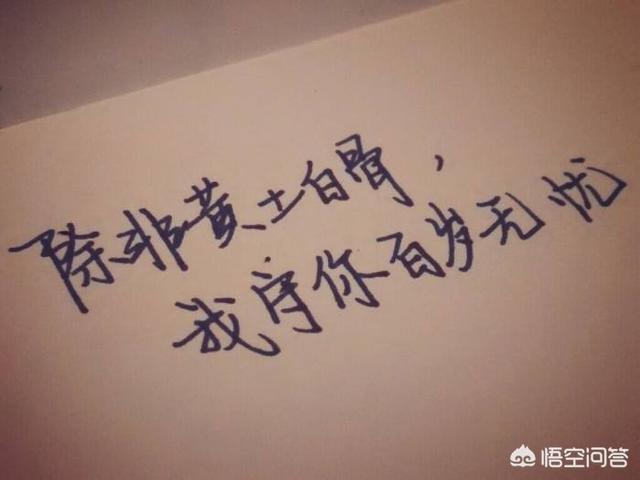 除非黄土白骨，
我守你百岁无忧
悟空问答